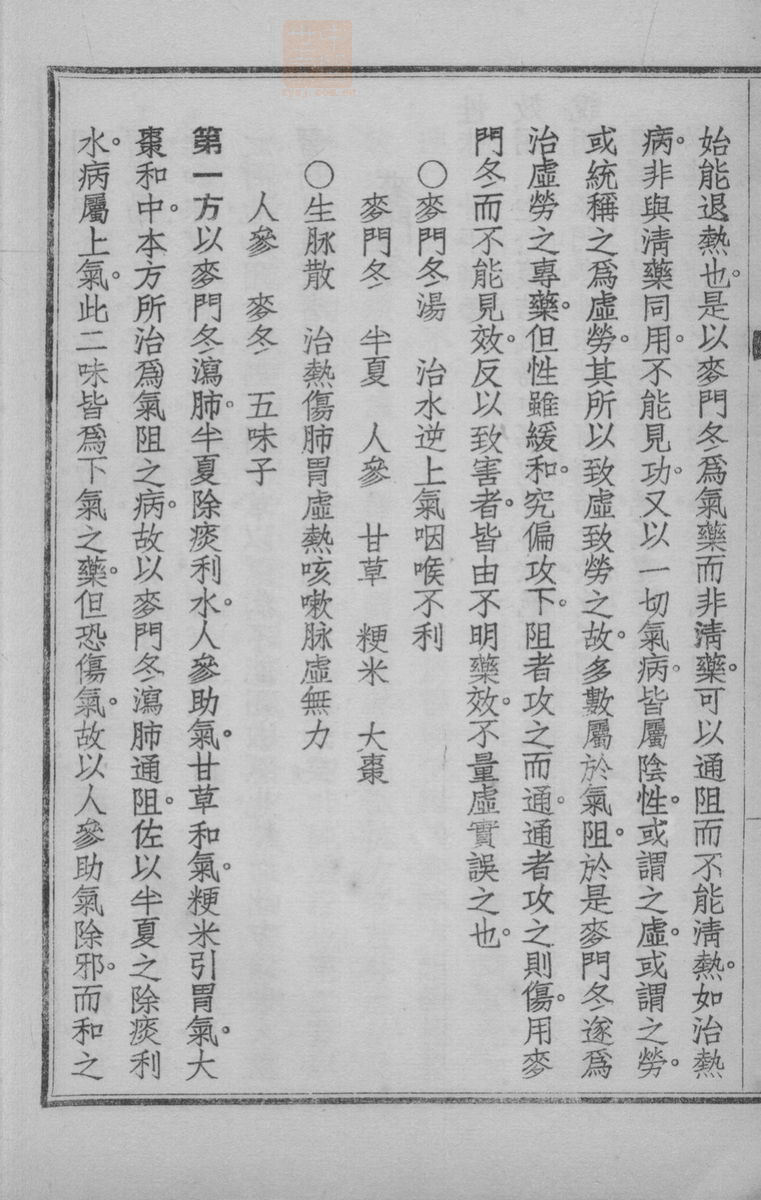 始能退熱也。是以麥門冬爲氣藥而非淸藥。可以通阻而不能淸熱。如治熱
病。非與淸藥同用。不能見功。又以一切氣病。皆屬陰性。或謂之虛。或謂之勞。
或統稱之爲虛勞。其所以致虛致勞之故。多數屬於氣阻。於是麥門冬遂爲
治虛勞之專藥。但性雖緩和。究偏攻下。阻者攻之而通。通者攻之則傷。用麥
門冬而不能見效。反以致害者。皆由不明藥效。不量虛實誤之也。
○麥門冬湯　治水逆上氣咽喉不利
麥門冬　半夏　人參　甘草　粳米　大棗
○生脉散　治熱傷肺胃虛熱咳嗽脉虛無力
人參　麥冬　五味子
第一方以麥門冬瀉肺。半夏除痰利水。人參助氣。甘草和氣。粳米引胃氣。大
棗和中。本方所治爲氣阻之病。故以麥門冬瀉肺通阻。佐以半夏之除痰利
水。病屬上氣。此二味皆爲下氣之藥。但恐傷氣。故以人參助氣除邪。而和之